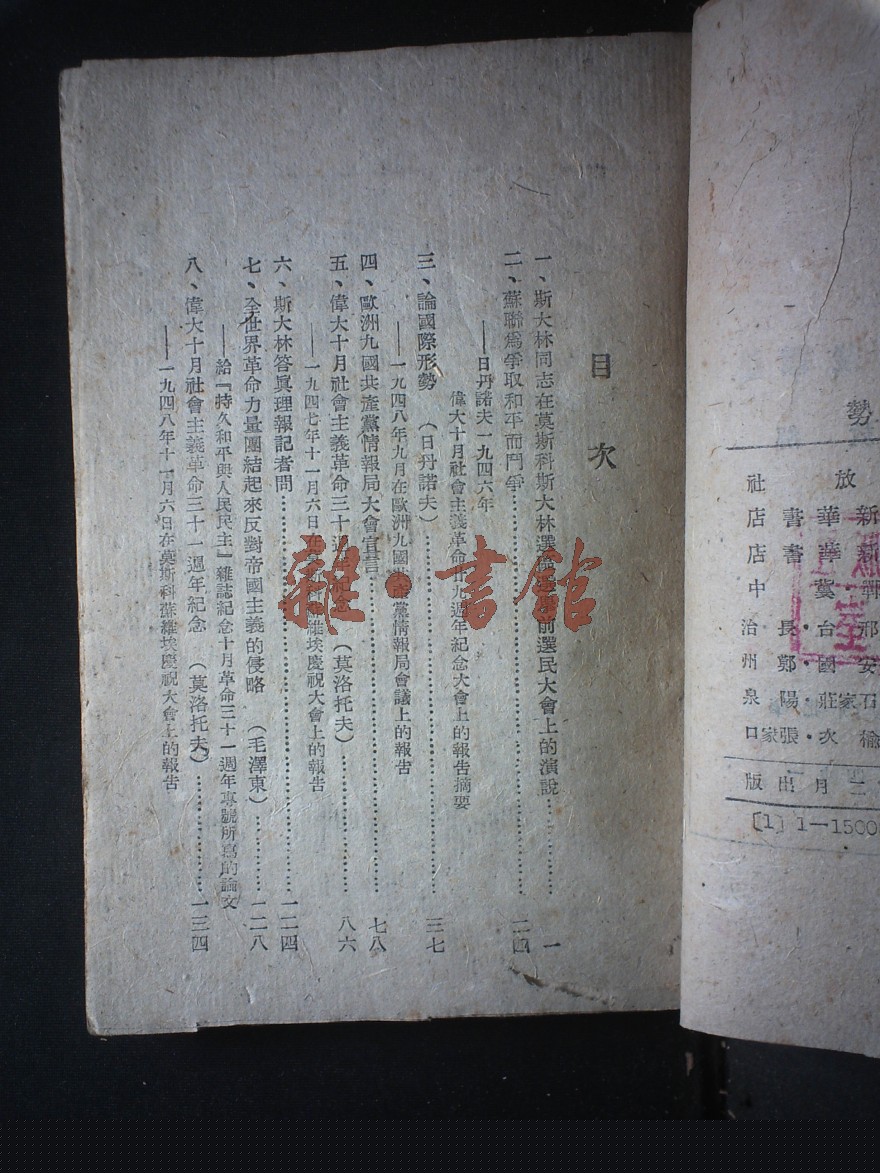 目次
一、斯大林同志在莫斯科斯大林選區選舉前選民大會上的演說…………一
二、蘇聯爲爭取和平而鬥爭…………二四
——日丹諾夫一九四六年
偉大十月社會主義革命廿九週年紀念大會上的報告摘要
三、論國際形勢（日丹諾夫）…………三七
——一九四八年九月在歐洲九國共產黨情報局會議上的報告
四、歐洲九國共產黨情報局大會宣言…………七八
五、偉大十月社會主義革命三十週年紀念（莫洛托夫）…………八六
——一九四七年十一月六日在莫斯科蘇維埃慶祝大會上的報告
六、斯大林答眞理報記者問…………一二四
七、全世界革命力量團結起來反對帝國主義的侵略（毛澤東）…………一二八
——給『持久和平與人民民主』雜誌紀念十月革命三十一週年專號所寫的論文
八、偉大十月社會主義革命三十一週年紀念（莫洛托夫）…………一三四
——一九四八年十一月六日在莫斯科蘇維埃慶祝大會上的報告
雜·書館
勢
放社
新華書店
新華書店
黨中
邢台·長治
安國·鄭州
石家莊·陽泉
榆次·張家口
二月出版
[1] 1—1500